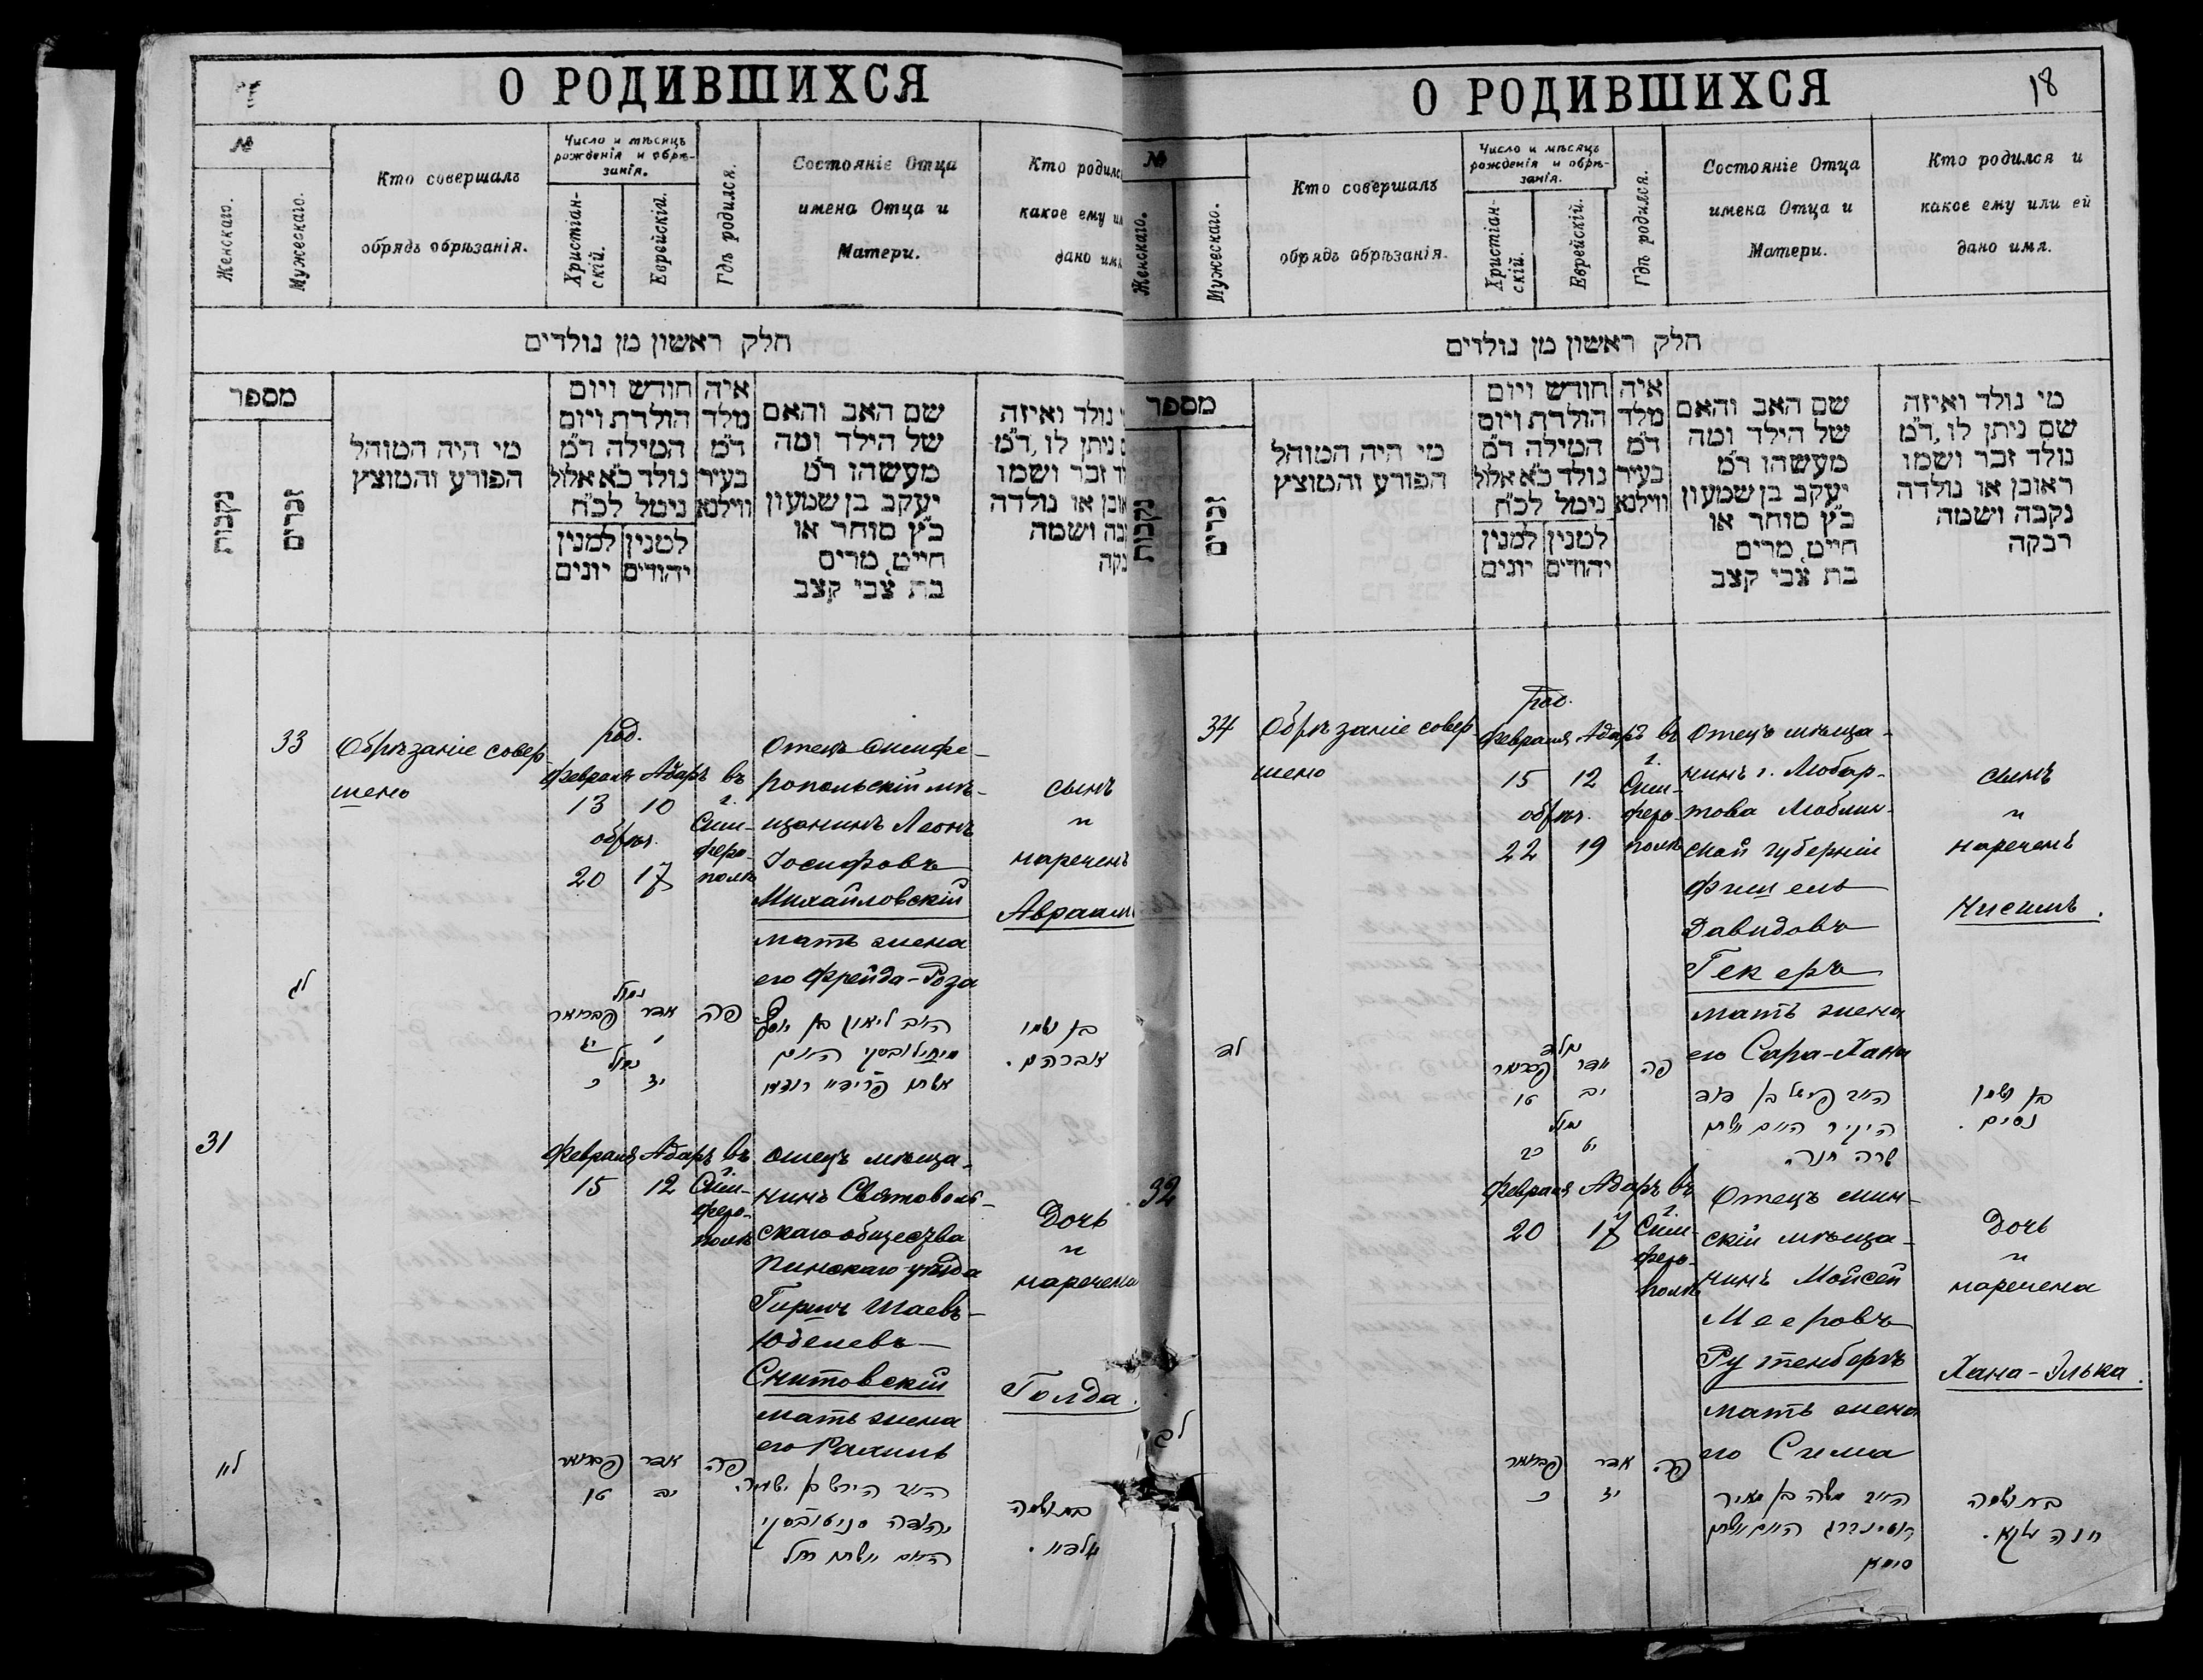 О РОДИВШИХСЯ
№
Женскаго.
Мужескаго.
Кто совершалъ
обрядъ обрѣзанія.
Число и мѣсяцъ
рожденія и обрѣ-
занія.
Христіан-
скій.
Еврейскій.
Гдѣ родился.
Состояніе Отца
имена Отца и
Матери.
Кто родилс
какое ему и
дано имя
חלק ראשון מן נולדים
מספר
נקבות
זכרים
מי היה המוהל
הפורע והמוצץ
חודש ויום
הולדת ויום
המילה ד״מ
נולד כ״א אלול
נימל לכ״ח
למנין
יונים
למנין
יהודים
איה
מלד
ד״מ
בעיר
ווילנא
שם האב והאם
של הילד ומה
מעשהו ד״מ
יעקב בן שמעון
כ״ץ סוחר או
חייט, מרים
בת צבי קצב
נולד ואיזה
ניתן לו, ד״מ
זכר ושמו
או נולדה
ושמה
33
Обрѣзаніе совер-
шено
род.
Февраля Адаръ
13 10
обрѣз.
20 17
въ
г.
Сим-
феро-
полѣ
Отецъ Симфе-
ропольскій мѣ-
щанинъ Леонъ
Іосифовъ
Михайловскій
мать жена
его Фрейда-Роза
сынъ
и
нареченъ
Авраамъ
לג
נולד
פברואר אדר
יג י
נמול
כ יז
פה
האב ליאון בן יוסף
מיחילובסקי האם
אשתו פריידא רוזא
בן ושמו
אברהם.
31
Февраля Адаръ
15 12
въ
г.
Сим-
феро-
полѣ
Отецъ мѣща-
нинъ Святоволь-
скаго общества
Пинскаго уѣзда
Гиршъ Шаевъ-
Юделевъ
Снитовскій
мать жена
его Рахиль
Дочь
и
наречена
Голда.
לא
פברואר אדר
טו יב
פה
האב הירש בן ישעיה
יהודה סניטובסקי
האם אשתו רחל
בת ושמה
גולדא.
О РОДИВШИХСЯ
18
№
Женскаго.
Мужескаго.
Кто совершалъ
обрядъ обрѣзанія.
Число и мѣсяцъ
рожденія и обрѣ-
занія.
Христіан-
скій.
Еврейскій.
Гдѣ родился.
Состояніе Отца
имена Отца и
Матери.
Кто родился и
какое ему или ей
дано имя.
חלק ראשון מן נולדים
מספר
נקבות
זכרים
מי היה המוהל
הפורע והמוצץ
חודש ויום
הולדת ויום
המילה ד״מ
נולד כ״א אלול
נימל לכ״ח
למנין
יונים
למנין
יהודים
איה
מלד
ד״מ
בעיר
ווילנא
שם האב והאם
של הילד ומה
מעשהו ד״מ
יעקב בן שמעון
כ״ץ סוחר או
חייט, מרים
בת צבי קצב
מי נולד ואיזה
שם ניתן לו, ד״מ
נולד זכר ושמו
ראובן או נולדה
נקבה ושמה
רבקה
34
Обрѣзаніе совер-
шено
род.
Февраля Адаръ
15 12
обрѣз.
22 19
въ
г.
Сим-
феро-
полѣ
Отецъ мѣща-
нинъ г. Любар-
това Люблин-
ской губерніи
Фишель
Давидовъ
Гекеръ
мать жена
его Сара-Хана
сынъ
и
нареченъ
Нисимъ.
לד
נולד
פברואר אדר
טו יב
נמול
כב יט
פה
האב פישל בן דוד
האם אשתו
שרה חנה
בן ושמו
נסים.
32
Февраля Адаръ
20 17
въ
г.
Сим-
феро-
полѣ
Отецъ мин-
скій мѣща-
нинъ Мойсей
Мееровъ
Рутенбергъ
мать жена
его Сима
Дочь
и
наречена
Хана-Элька.
לב
פברואר אדר
כ יז
פה
האב משה בן מאיר
רוטינברג האם אשתו
סימא
בת ושמה
חנה עלקא.